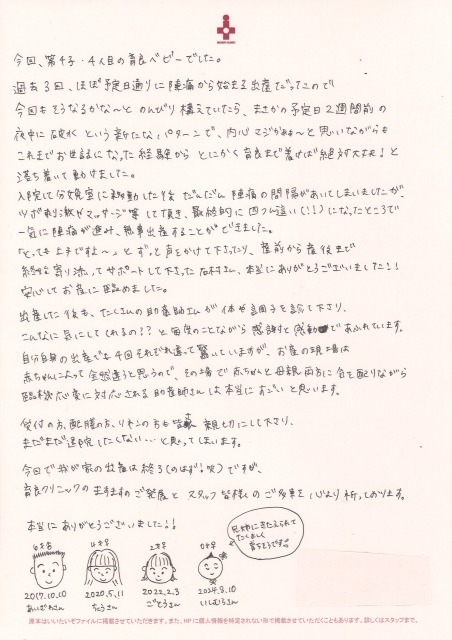 今回、第4子・4人目の育良ベビーでした。
過去3回、ほぼ予定日通りに陣痛から始まる出産だったので
今回もそうなるかな〜とのんびり構えていたら、まさかの予定日2週間前の
夜中に破水という新たなパターンで、内心マジかぁ〜と思いながらも
これまでお世話になった経験からとにかく育良まで着けば絶対大丈夫！と
落ち着いて動けました。
入院して分娩室に移動した後だんだん陣痛の間隔があいてしまいましたが、
ツボ刺激やマッサージ等して頂き、最終的に四つん這い(!!)になったところで
一気に陣痛が進み、無事出産することができました。
「とっても上手ですよ〜」とずっと声をかけて下さったり、産前から産後まで
終始寄り添ってサポートして下さった石村さん、本当にありがとうございました!!
安心してお産に臨めました。
出産した後も、たくさんの助産師さんが体や調子を診て下さり、
こんなに気にしてくれるの??と毎度のことながら感謝と感動であふれています。
自分自身の出産でも4回それぞれ違って驚いていますが、お産の現場は
赤ちゃんによって全然違うと思うので、その場で赤ちゃんと母親両方に気を配りながら
臨機応変に対応される助産師さんは本当にすごいと思います。
受付の方、配膳の方、リネンの方も皆さま親切にして下さり、
まだまだ退院したくない…と思ってしまいます。
今回で我が家の出産は終了(のはず！笑)ですが、
育良クリニックのますますのご発展とスタッフ皆様のご多幸を心より祈っております。
本当にありがとうございました!!
兄姉にきたえられて
たくましく
育ちそうです
6才 4才 2才 0才
2017.10.10 2020.5.11 2022.2.3 2024.8.10
ごとうさん いしむらさん
原本はいいたいぞファイルに掲載させていただきます。また、HPに個人情報を特定されない形で掲載させていただくこともあります。詳しくはスタッフまで。